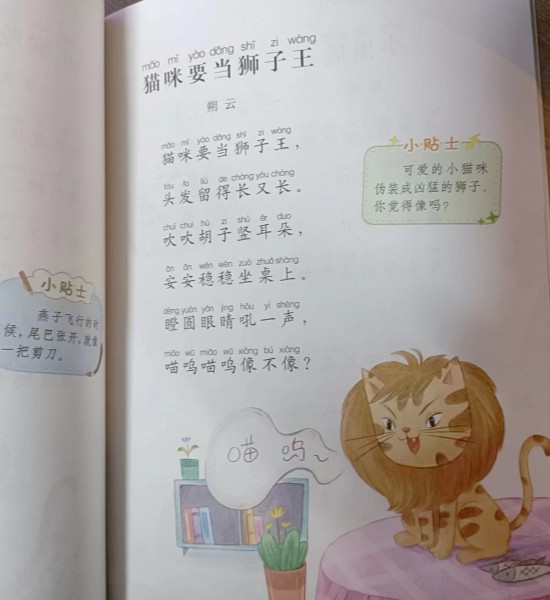 māo mī yào dāng shī zi wáng
猫咪要当狮子王
朔云
māo mī yào dāng shī zi wáng
猫咪要当狮子王，
tóu fa liú de cháng yòu cháng
头发留得长又长。
chuī chuī hú zi shù ěr duo
吹吹胡子竖耳朵，
ān ān wěn wěn zuò zhuō shàng
安安稳稳坐桌上。
dèng yuán yǎn jing hǒu yì shēng
瞪圆眼睛吼一声，
miāo wū miāo wū xiàng bú xiàng
喵呜喵呜像不像？
小贴士
可爱的小猫咪
伪装成凶猛的狮子，
你觉得像吗？
小贴士
燕子飞行的时
候，尾巴张开，就像
一把剪刀。
喵 呜～